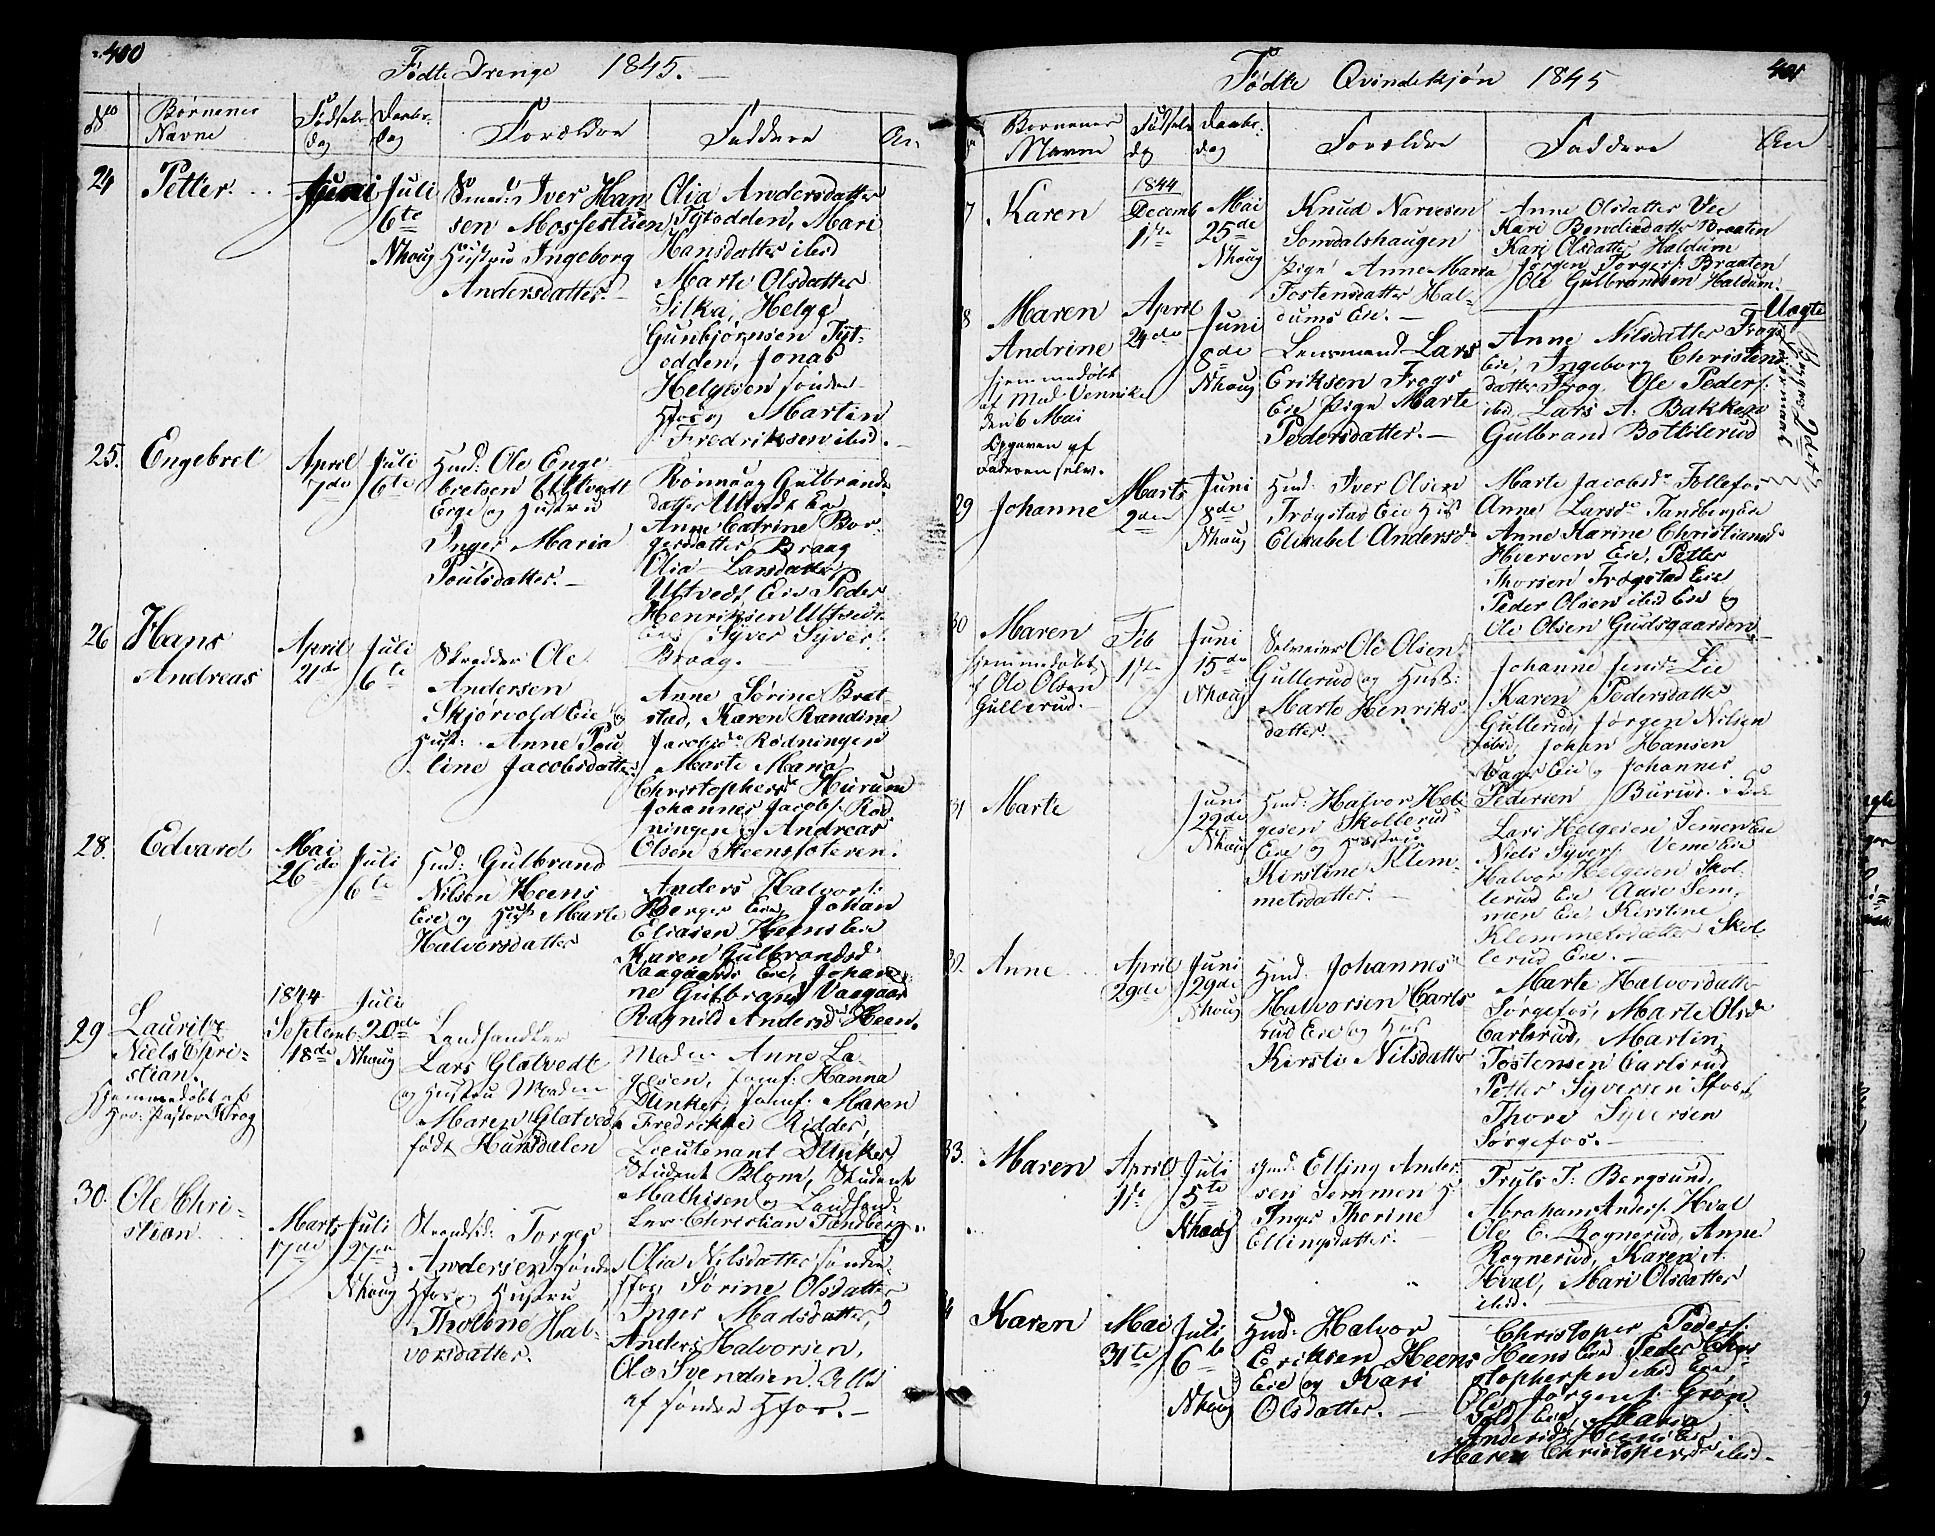 400
Födte Drenge 1845.
No
Børnenes
Navne
Fødsels
dag
Daabs
dag
Forældre
Faddere
An.
24
Petter.
Juni
Juli
6te
Nhoug
Iver Han
sen Mosfestuen
Hustru Ingeborg
Andersdatter.
Olia Andersdatter
Tytodden, Mari
Hansdatter ibid
Marte Olsdatter
Silka, Helge
Gunbjørnsen Tyt-
odden, Jonas
Helgesen søndre
Hfos og Martin
Fredriksen ibid.
25.
Engebret
April
7de
Juli
6te
Huusd: Ole Enge
bretsen Ultvedt
Eige og Hustru
Inger Maria
Poulsdatter.
Rönnaug Gulbrands
datter Ultvedt Eie
Anne Catrine Bor-
gersdatter Braag
Olia Larsdatter
Ultvedt Eie Peder
Henriksen Ultvedt
Eie, Syver Syvers:
Braag.
26
Hans
Andreas
April
21de
Juli
6te
Skrædder Ole
Andersen
Skjørvold Eie og
Hust: Anne Pou
line Jacobsdatter
Anne Sörine Brat
stad, Karen Randine
Jacobsd: Rödningen
Marte Maria
Christophers Hurum
Johannes Jacobs: Röd
ningen og Andreas
Olsen Steensfoteren.
28.
Edvard
Mai
26de
Juli
6te
Hmd: Gulbrand
Nilsen Heens
Eie og Hust Marte
Halvorsdatter
Anders Halvors:
Berger Eie, Johan
Eliasen Heens Eie
Karen Gulbrandsd:
Vaagaards Eie, Johan
ne Gulbrans Vaagaar
Ragnild Andersd Heen.
29
Lauritz
Niels Chri-
stian.
Hjemmedöbt af
Hr: Pastor Krog
1844
Septemb.
18de
Juli
20de
Nhoug
Landhandler
Lars Glatvedt
og Hustru Madm
Maren Glatvedt
født Hunsdalen
Madm Anne La
gesen, Jomf: Hanna
Dunker, Jomf: Maren
Fredrikke Ridder,
Lieutenant Dunker
Student Blom, Student
Mathisen og Landhand-
ler Christian Tandberg.
30.
Ole Chri-
stian
Marts
17de
Juli
27de
Nhoug
Strandsid: Torger
Andersen søndre
Hfos og Hustru
Tholene Hal-
vorsdatter.
Olia Nilsdatter søndre
Hfos, Sörine Olsdatter
Inger Madsdatter,
Anders Halvorsen,
Ole Svendsen. Alle
af söndre Hfos.
401
Födte Qvindekjön 1845
Børnenes
Navne
Födsels
dg
Daabs.
dag
Forældre
Faddere
An
7
Karen
1844
Decemb
11te
Mai
25de
Nhoug
Knud Narvesen
Somdalshaugen
Pige Anne Maria
Tostensdatter Hal-
dums Eie.
Anne Olsdatter Vee
Kari Bendixdatter Braaten
Kari Olsdatter Haldum
Jörgen Torgers: Braaten
Ole Gulbrandsen Haldum.
Uægte
8
Maren
Andrine
hjemmedöbt
af Mad. Vennike
den 6 Mai
Opgaven af
Faderen selv.
April
24de
Juni
8de
Nhoug
Lensmand Lars
Eriksen Frogs
Eie Pige Marte
Pedersdatter.
Anne Nilsdatter Frogs
Eie, Ingeborg Christens
datter Frog. Ole Peders:
ibid, Lars A. Bakken
Gulbrand Bottilerud
Begges 2det
Leiermaal
29
Johanne
Marts
2den
Juni
8de
Nhoug
Hmd: Iver Olsen
Frogstad Eie Hus
Elisabet Andersd:
Marte Jacobsdr Follefos
Anne Larsdr Tandbergseie
Anne Karine Christiansdr
Hverven Eie, Petter
Thorsen Frogstad Eie
Peder Olsen ibid Eie og
Ole Olsen Gudsgaarden
30
Maren
hjemmedöbt
af Ole Olsen
Gullerud.
Feb
11te
Juni
15de
Nhoug
Selveier Ole Olsen
Gullerud og Hust:
Marte Henriks
datter.
Johanne Jensdr Lie
Karen Pedersdatter
Gullerud, Jörgen Nilsen
ibid, Johan Hansen
Vager Eie og Johannes
Pedersen Burud Eie
31
Marte
Juni
29de
Nhoug
Hmd: Halvor Hel
gesen Skollerud
Eie og Hustru
Kirstine Klem-
metsdatter.
Lars Helgesen Semmen Eie
Niels Syvers: Veme Eie
Halvor Helgesen Skol-
lerud Eie Aase Sem-
men Eie, Kirstine
Klemmetsdatter Skol-
lerud Eie.
32.
Anne
April
29de
Juni
29de
Nhoug
Hmd: Johannes
Halvorsen Carls
rud Eie og Hus
Kirsti Nilsdatter
Marte Halvorsdatter
Sørgefos, Marte Olsdr
Carlsrud, Martin
Tostensen Carlsrud
Petter Syversen Hfos
Thore Syversen
Sørgefos.
33.
Maren
April
11te
Juli
5te
Nhoug
Hmd: Elling Ander
sen Semmen H:
Inger Thorine
Ellingsdatter.
Truls T. Bergsund,
Abraham Anders: Hval
Ole E. Rognerud, Anne
Rognerud, Karen A.
Hval, Mari Olsdatter
ibid.
Karen
Mai
31te
Juli
6te
Nhoug
Hmd: Halvor
Eriksen Heens
Eie og Kari
Olsdatter.
Christopher Peders:
Heens Eie Peder Chri
stophersen ibid Eie
Ole Jörgens: Grön-
vold Eie, Maria
Andersdr Heens Eie
Maren Christophersdr ibid.